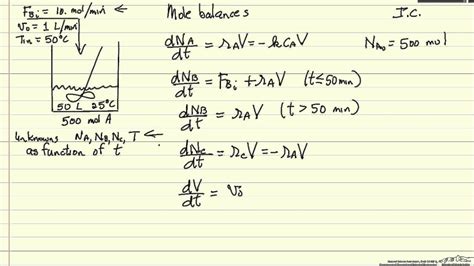 F_Bi = 10. mol/min
v_0 = 1 L/min
T_in = 50°C
50 L 25°C
500 mol A
unknowns N_A, N_B, N_C, T ←
as function of t
Mole balances
dN_A/dt = r_A V = -k C_A V
dN_B/dt = F_Bi + r_A V (t ≤ 50 min)
dN_B/dt = r_A V (t > 50 min)
dN_C/dt = r_C V = -r_A V
dV/dt = v_0
I.C.
N_A0 = 500 mol